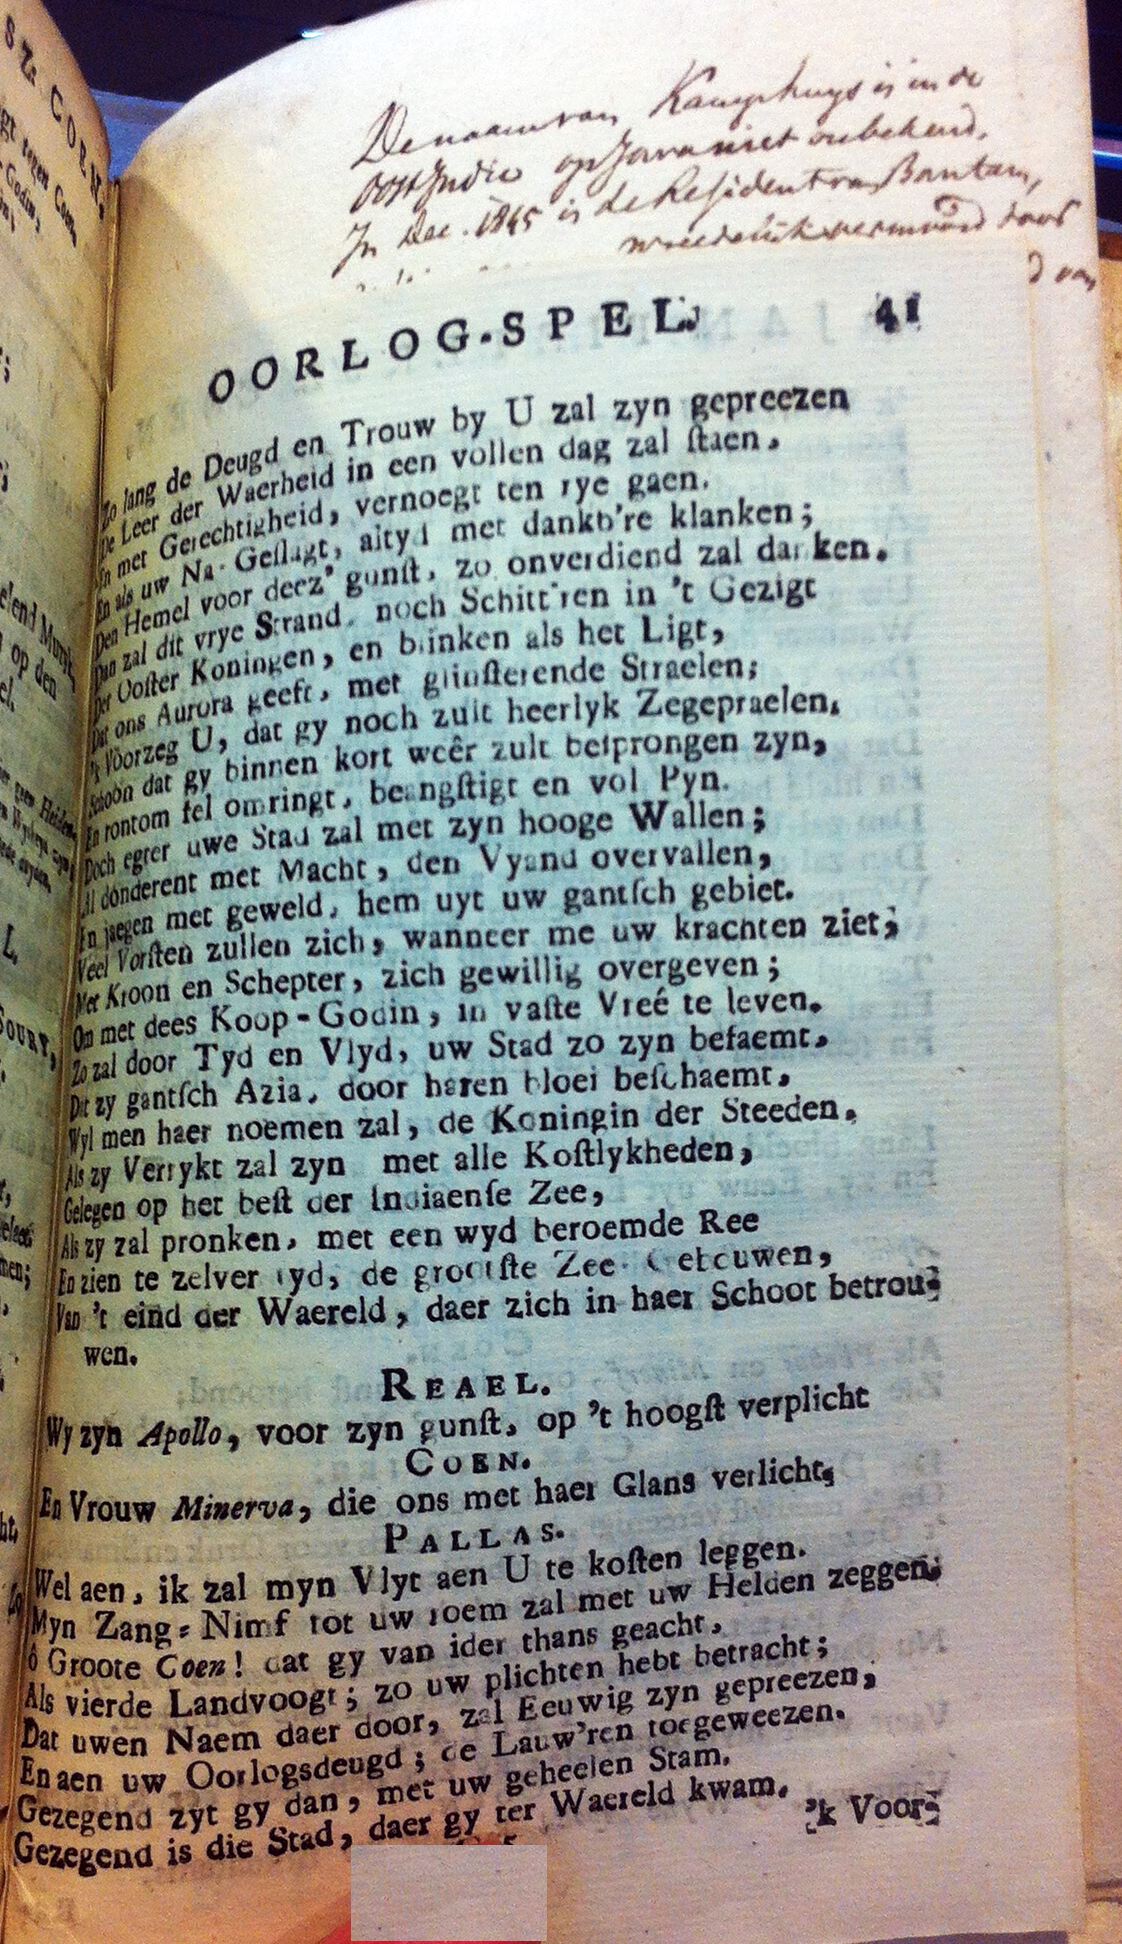 De naam van Kamphuys is in de
Oost Indie op Java niet onbekend.
In Dec. 1845 is de Resident van Bantam,
wreedelijk vermoord door
d van
OORLOG-SPEL. 41
Zo lang de Deugd en Trouw by U zal zyn gepreezen
De Leer der Waerheid in een vollen dag zal ſtaen.
En met Gerechtigheid, vernoegt ten rye gaen.
En als uw Na-Geſlagt, altyd met dankb're klanken;
Den Hemel voor deez' gunſt, zo onverdiend zal danken.
Dan zal dit vrye Strand, noch Schitt'ren in 't Gezigt
Der Ooſter Koningen, en blinken als het Ligt,
Dat ons Aurora geeft, met glinſterende Straelen;
'k Voorzeg U, dat gy noch zult heerlyk Zegepraelen,
Schoon dat gy binnen kort weêr zult beſprongen zyn,
En rontom fel omringt, beangſtigt en vol Pyn.
Doch egter uwe Stad zal met zyn hooge Wallen;
Al donderent met Macht, den Vyand overvallen,
En jaegen met geweld, hem uyt uw gantſch gebiet.
Veel Vorſten zullen zich, wanneer me uw krachten ziet;
Met Kroon en Schepter, zich gewillig overgeven;
Om met dees Koop-Godin, in vaſte Vreé te leven.
Zo zal door Tyd en Vlyd, uw Stad zo zyn befaemt.
Dat zy gantſch Azia, door haren bloei beſchaemt,
Wyl men haer noemen zal, de Koningin der Steeden.
Als zy Verrykt zal zyn met alle Koſtlykheden,
Gelegen op het beſt der Indiaenſe Zee,
Als zy zal pronken, met een wyd beroemde Ree
En zien te zelver tyd, de grootſte Zee-Gebouwen,
Van 't eind der Waereld, daer zich in haer Schoot betrou-
wen.
REAEL.
Wy zyn Apollo, voor zyn gunſt, op 't hoogſt verplicht
COEN.
En Vrouw Minerva, die ons met haer Glans verlicht,
PALLAS.
Wel aen, ik zal myn Vlyt aen U te koſten leggen.
Myn Zang-Nimf tot uw roem zal met uw Helden zeggen;
ô Groote Coen! dat gy van ider thans geacht,
Als vierde Landvoogt; zo uw plichten hebt betracht;
Dat uwen Naem daer door, zal Eeuwig zyn gepreezen,
En aen uw Oorlogsdeugd; de Lauw'ren toegeweezen.
Gezegend zyt gy dan, met uw geheelen Stam.
Gezegend is die Stad, daer gy ter Waereld kwam.
'k Voor-